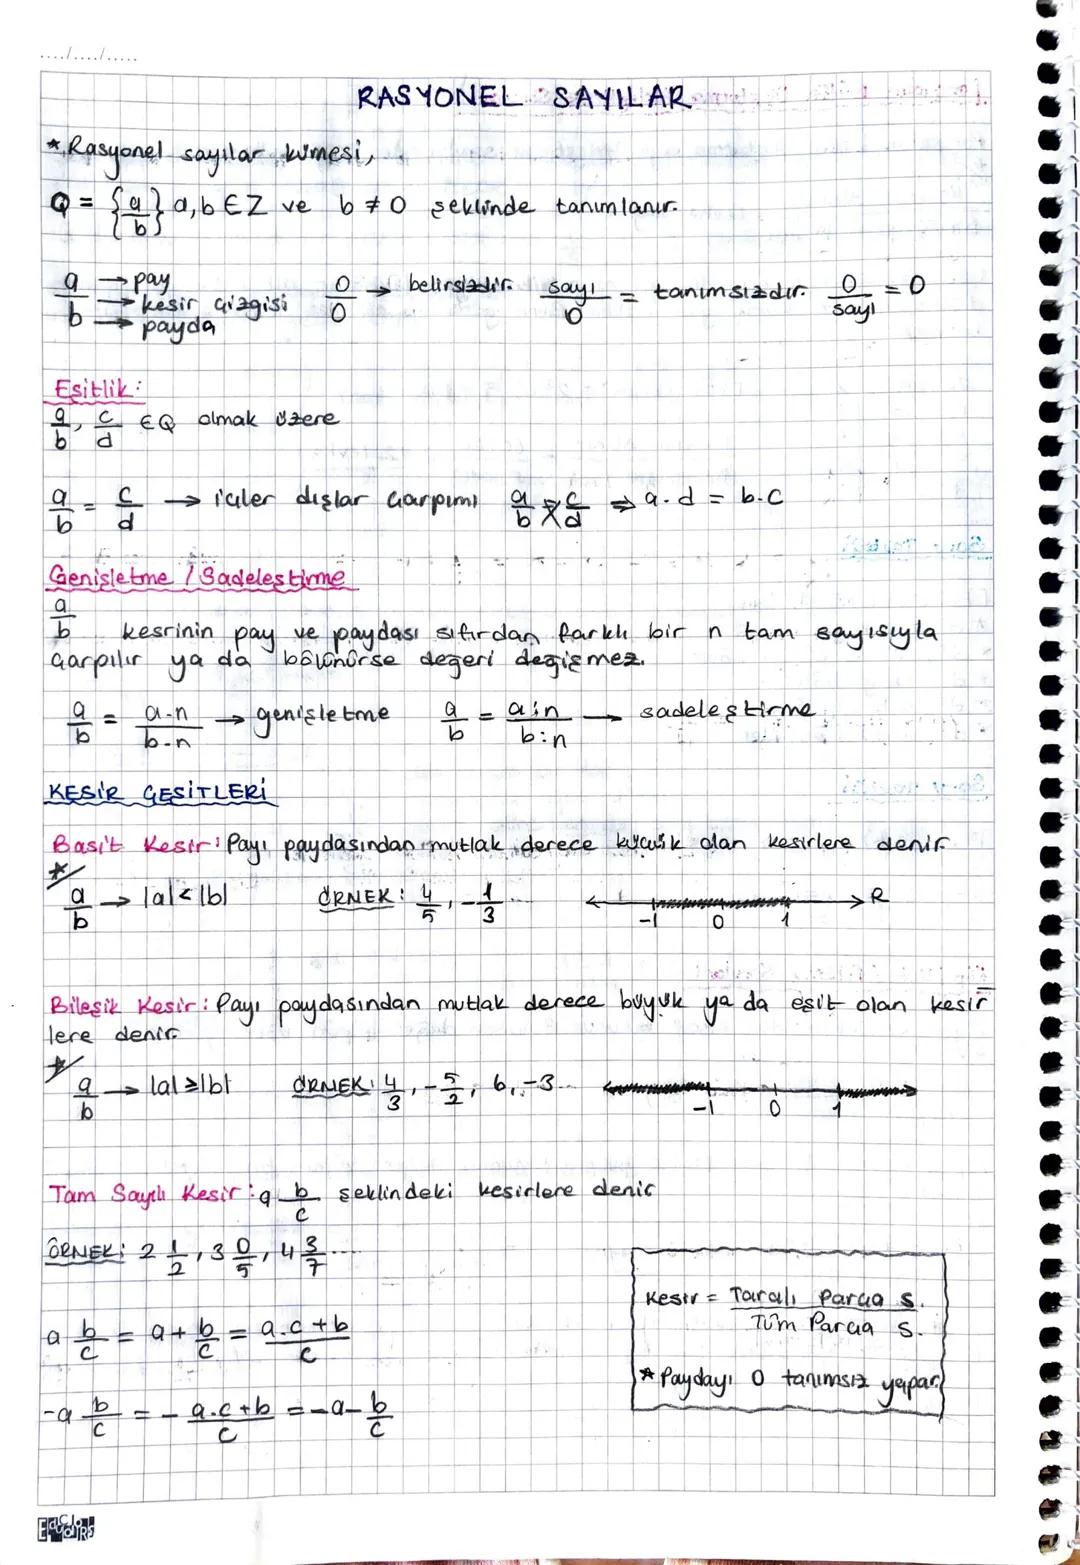 ..../..../.....
RASYONEL SAYILAR
* Rasyonel sayılar kümesi,
Q = {a/b} a,b ∈ Z ve b ≠ 0 şeklinde tanımlanır.
a/b → pay → kesir çizgisi → payda 0/0 → belirsizdir. sayı/0 = tanımsızdır. 0/sayı = 0
Eşitlik:
a/b, c/d ∈ Q olmak üzere
a/b = c/d → içler dışlar çarpımı a/b ⤫ c/d ⇒ a.d = b.c
Genişletme / Sadeleştirme
a/b kesrinin pay ve paydası sıfırdan farklı bir n tam sayısıyla
çarpılır ya da bölünürse değeri değişmez.
a/b = a.n/b.n → genişletme a/b = a:n/b:n → sadeleştirme
KESİR ÇEŞİTLERİ
Basit Kesir: Payı paydasından mutlak derece küçük olan kesirlere denir.
* a/b → |a| < |b| ÖRNEK: 4/5, -1/3 ... -1 0 1 R
Bileşik Kesir: Payı paydasından mutlak derece büyük ya da eşit olan kesir
lere denir.
* a/b → |a| ≥ |b| ÖRNEK: 4/3, -5/2, 6, -3... -1 0 1
Tam Sayılı Kesir: a b/c şeklindeki kesirlere denir
ÖRNEK: 2 1/2, 3 0/5, 4 3/7 ....
a b/c = a + b/c = a.c+b/c
-a b/c = - a.c+b/c = -a - b/c
Kesir = Taralı Parça s. / Tüm Parça s.
* Paydayı 0 tanımsız yapar.